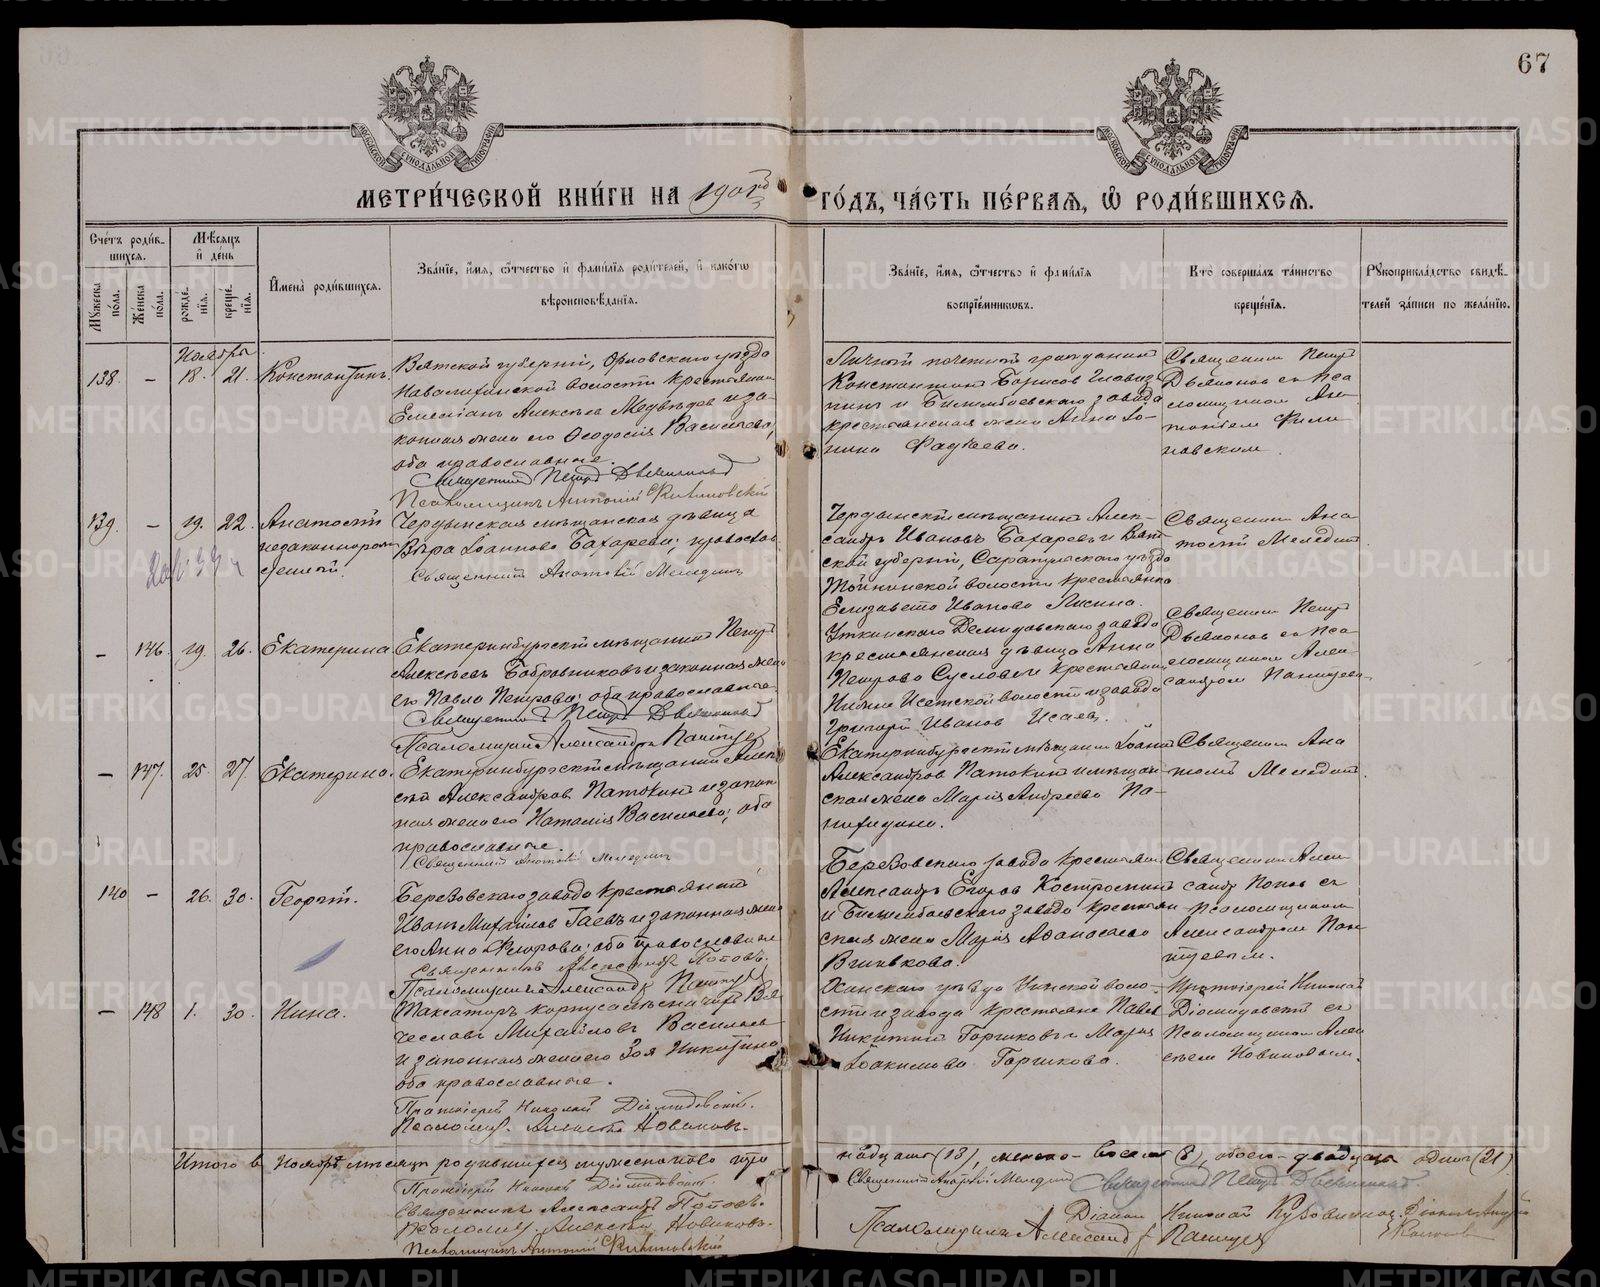 67
МЕТРИ́ЧЕСКОЙ КНИ́ГИ НА 1901й ГО́ДЪ, ЧА́СТЬ ПЕ́РВАѦ, Ѡ РОДИ́ВШИХСѦ.
Сче́тъ роди́вшихся.
Мꙋ́жеска по́ла.
Же́нска по́ла.
Мѣ́сяцъ и де́нь
рожде́нїя.
креще́нїя.
Имена̀ роди́вшихся.
Зва́нїе, и́мя, ѻ́тчество и фами́лїя роди́телей, и како́гѡ вѣроисповѣ́данїя.
Зва́нїе, и́мя, ѻ́тчество и фами́лїя воспрїе́мниковъ.
Кто̀ соверша́лъ та́инство креще́нїя.
Рꙋкоприкла́дство свидѣ́телей за́писи по жела́нїю.
Ноябрь
138. – 18. 21. Константинъ.
Вятской губернiи, Орловскаго уѣзда
волости крестьянинъ
Алексѣевъ Медвѣдев и за-
конная жена его Ѳеодосiя Васильева,
оба православные.
Священникъ Петръ
Псаломщикъ Антонiй
Личный почетный гражданинъ
Константинъ Борисов
и Билимбаевскаго завода
крестьянская жена Анна
Фадѣева.
Священник Петр
с пса-
ломщиком Ан-
тонiем
139. – 19. 22. Анатолiй
незаконнорож-
денный.
Чердынская мѣщанская дѣвица
Вѣра Iоаннова Бахарева, православ
Священникъ Анатолiй
Чердынскiй мѣщанинъ Алек-
сандръ Ивановъ Бахаревъ и Вят-
ской губернiи, Сарапульскаго уѣзда
волости крестьянка
Елизавета Иванова
Священник Ана
толiй
– 146. 19. 26. Екатерина
Екатеринбургскiй мѣщанинъ Петръ
Алексѣевъ Бобровниковъ и законная жена
его Павла Петрова, оба православные
Священникъ Петръ
Псаломщик Александръ
Уткинскаго Демидовскаго завода
крестьянская дѣвица Анна
Петрова Суслова и крестьянин
Исетской волости и завода
Григорiй Иванов Исаев.
Священник Петр
с пса-
ломщиком Алек-
сандром
– 147. 25. 27. Екатерина.
Екатеринбургскiй мѣщанинъ Алек-
Александров Патокин и закон-
ная жена его Наталiя Васильева, оба
православные.
Священникъ Анатолiй
Екатеринбургскiй мѣщанин Iоанн
Александров Патокин и мѣщан-
ская жена Марiя Андреева
Священник Ана
толiй
140 – 26. 30. Георгiй.
Березовскаго завода крестьянинъ
Иванъ Михайлов Гаевъ и законная жена
его Анна, оба православные
Священникъ Александр Поповъ.
Псаломщикъ Александръ
Березовскаго завода крестьянин
Александръ Егоров Костромин
и Билимбаевскаго завода крестьян-
ская жена Марiя Аѳанасьева
Священник Алек-
сандр Попов с
псаломщиком
Александром
– 148 1. 30. Нина.
Таксаторъ корпуса лѣсничихъ Вя-
чеслав Михайловъ Васильевъ
и законная жена его Зоя Никитина
оба православные.
Протоiерей Николай Дiомидовскiй.
Псаломщ. Алексѣй Новиковъ.
Осинскаго уѣзда Уинской воло-
сти и завода крестьяне Павелъ
Никитин Горшковъ и Марiя
Iоакимова Горшкова.
Протоiерей Николай
Дiомидовскiй с
Псаломщиком Алек-
сѣем Новиковым.
Итого в Ноябрѣ мѣсяцѣ родившихся мужескаго три
надцать (13), женска – восемь (8), обоего – двадцать один (21)
Протоiерей Николай Дiомидовскiй.
Священникъ Александръ Поповъ.
Псаломщ. Алексѣй Новиковъ.
Псаломщикъ Антонiй
Священникъ Петръ
Дiакон Николай
Псаломщикъ Александр